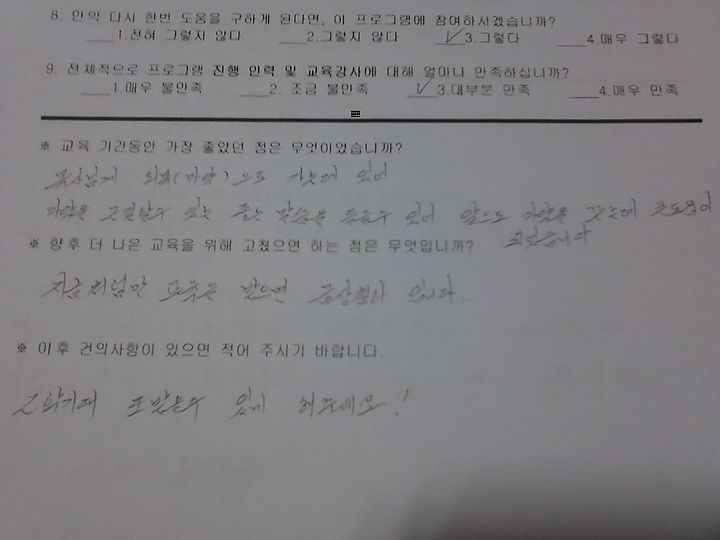 8. 만약 다시 한번 도움을 구하게 된다면, 이 프로그램에 참여하시겠습니까?
___1.전혀 그렇지 않다 ___2.그렇지 않다 _✓_3.그렇다 ___4.매우 그렇다
9. 전체적으로 프로그램 진행 인력 및 교육강사에 대해 얼마나 만족하십니까?
___1.매우 불만족 ___2. 조금 불만족 _✓_3.대부분 만족 ___4.매우 만족
※ 교육 기간동안 가장 좋았던 점은 무엇이었습니까?
(마약)으로 있어
마약을 있는 좋은 말씀을 들을수 있어 앞으로 마약을 끊는데 큰도움이
되었습니다
※ 향후 더 나은 교육을 위해 고쳤으면 하는 점은 무엇입니까?
지금처럼만 교육을 받으면 있니다..
※ 이후 건의사항이 있으면 적어 주시기 바랍니다.
있게 해주세요!